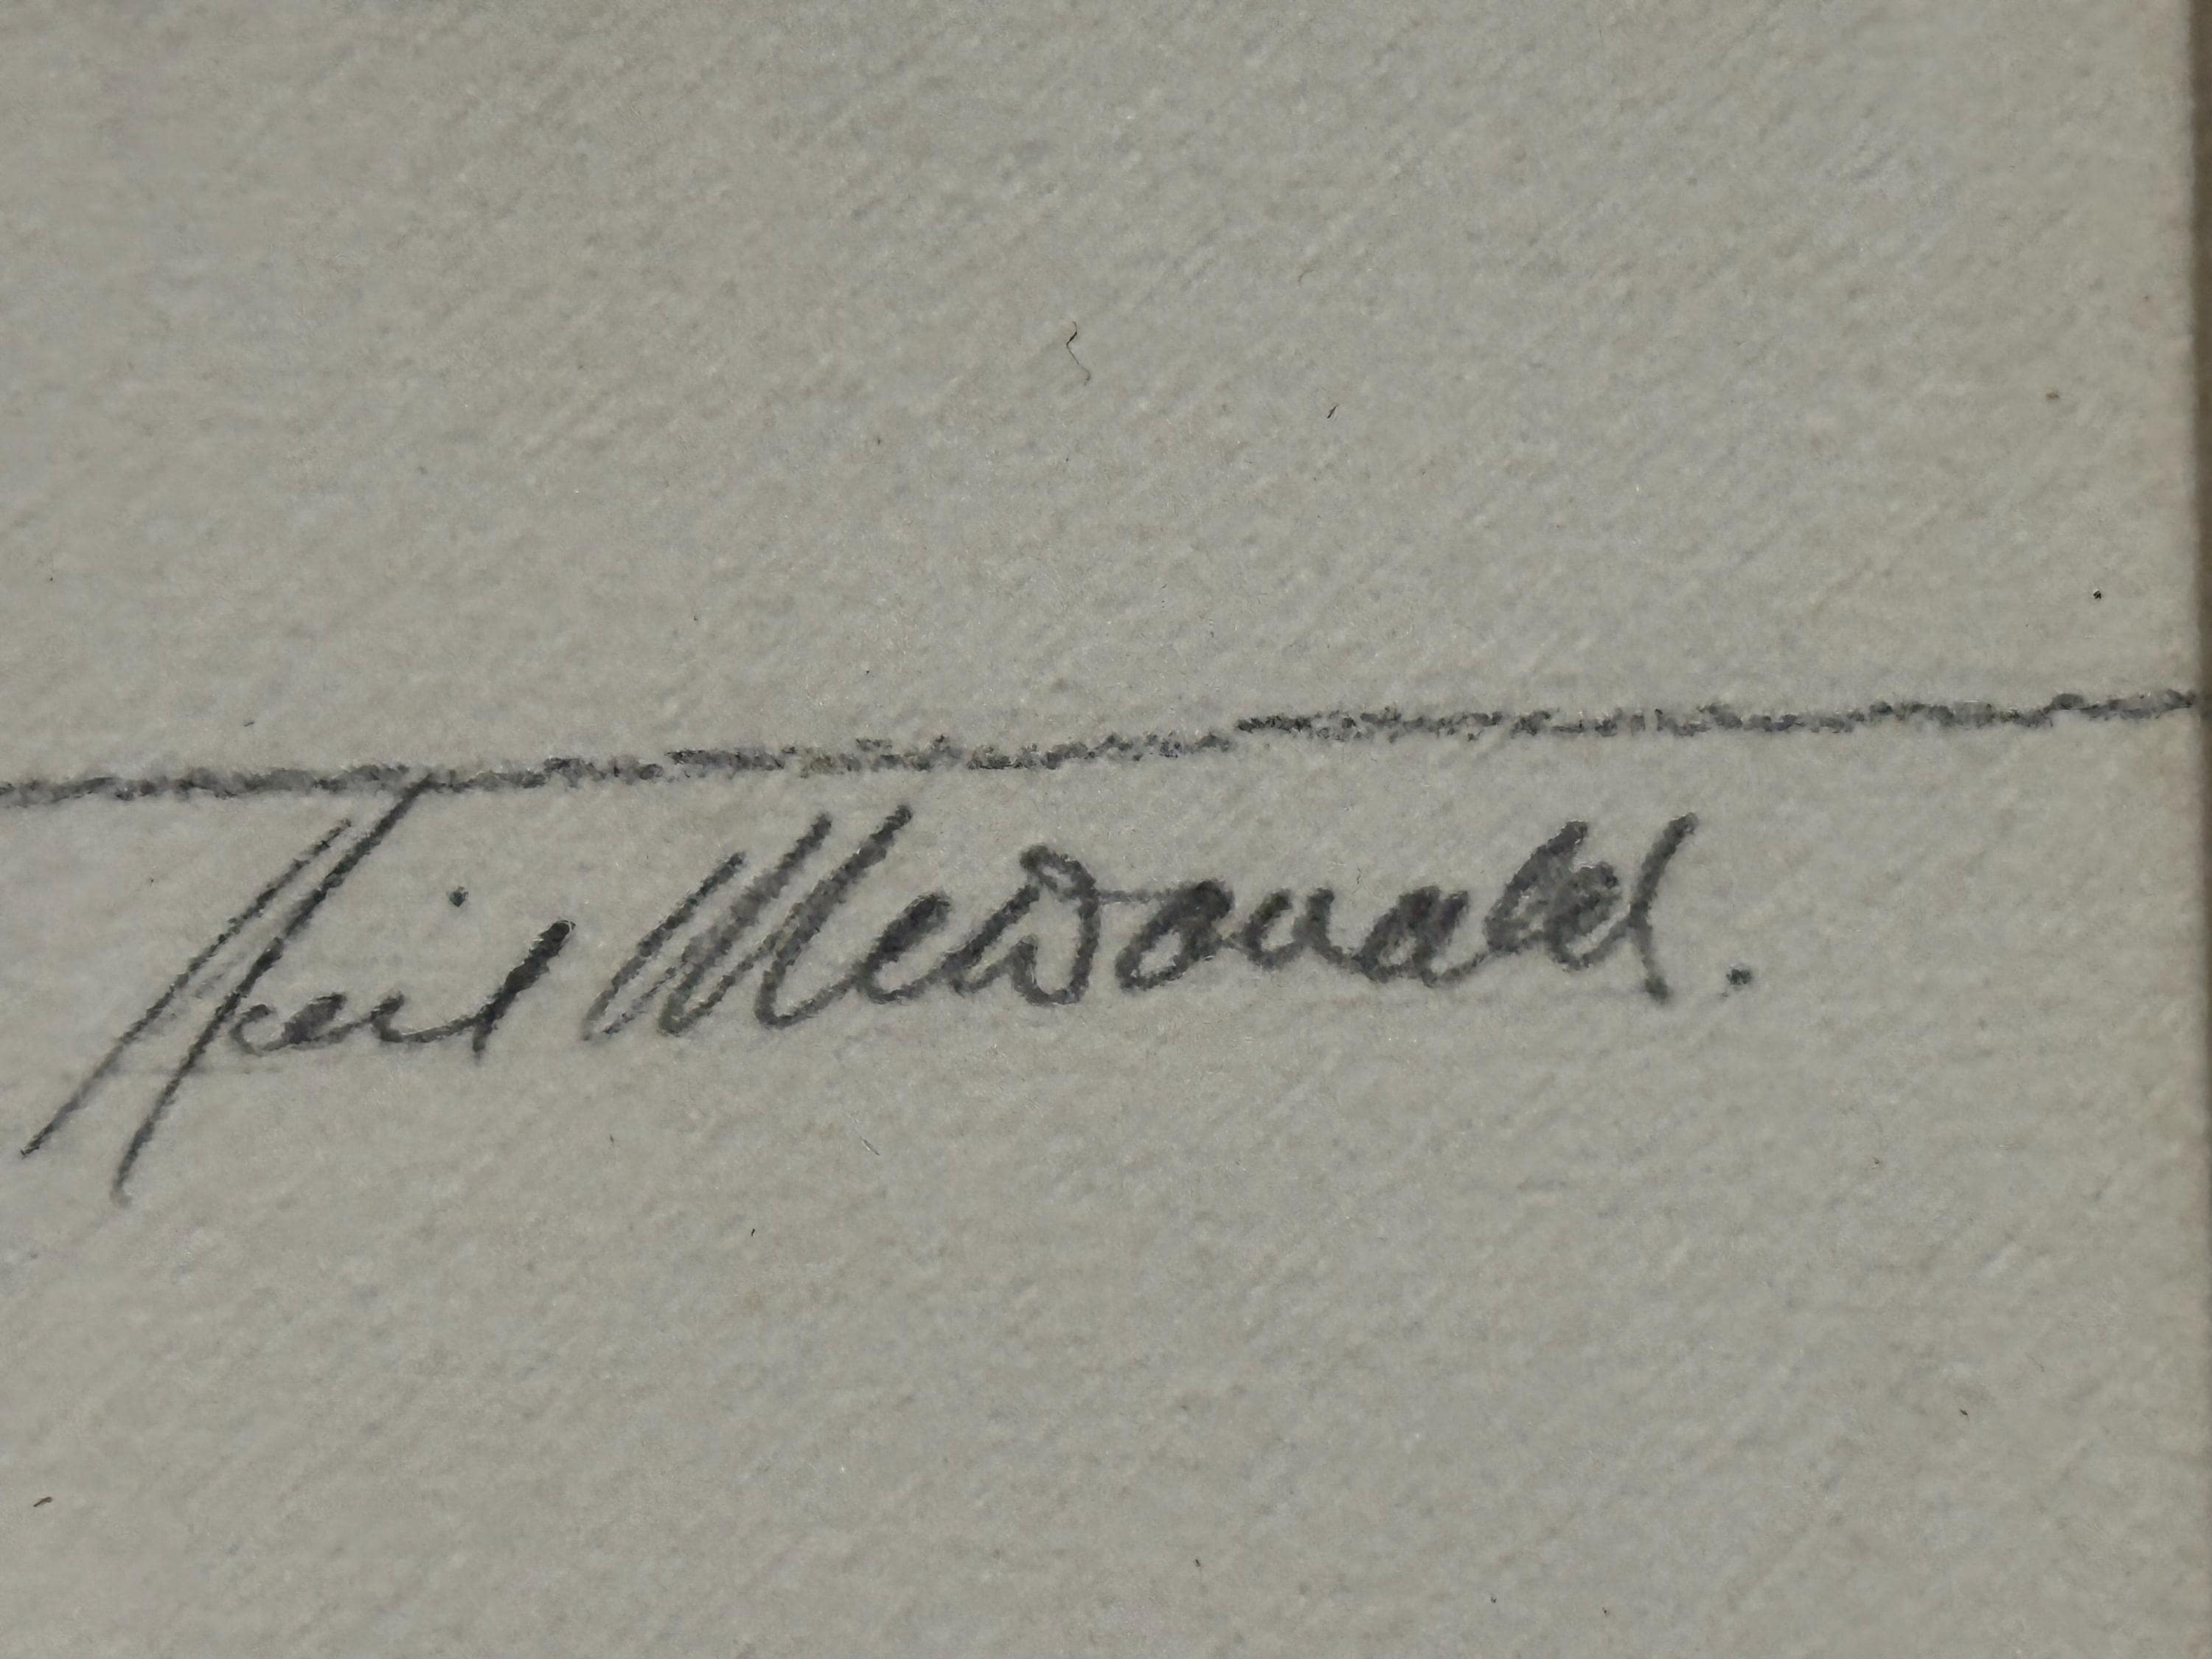 Neil McDonald.